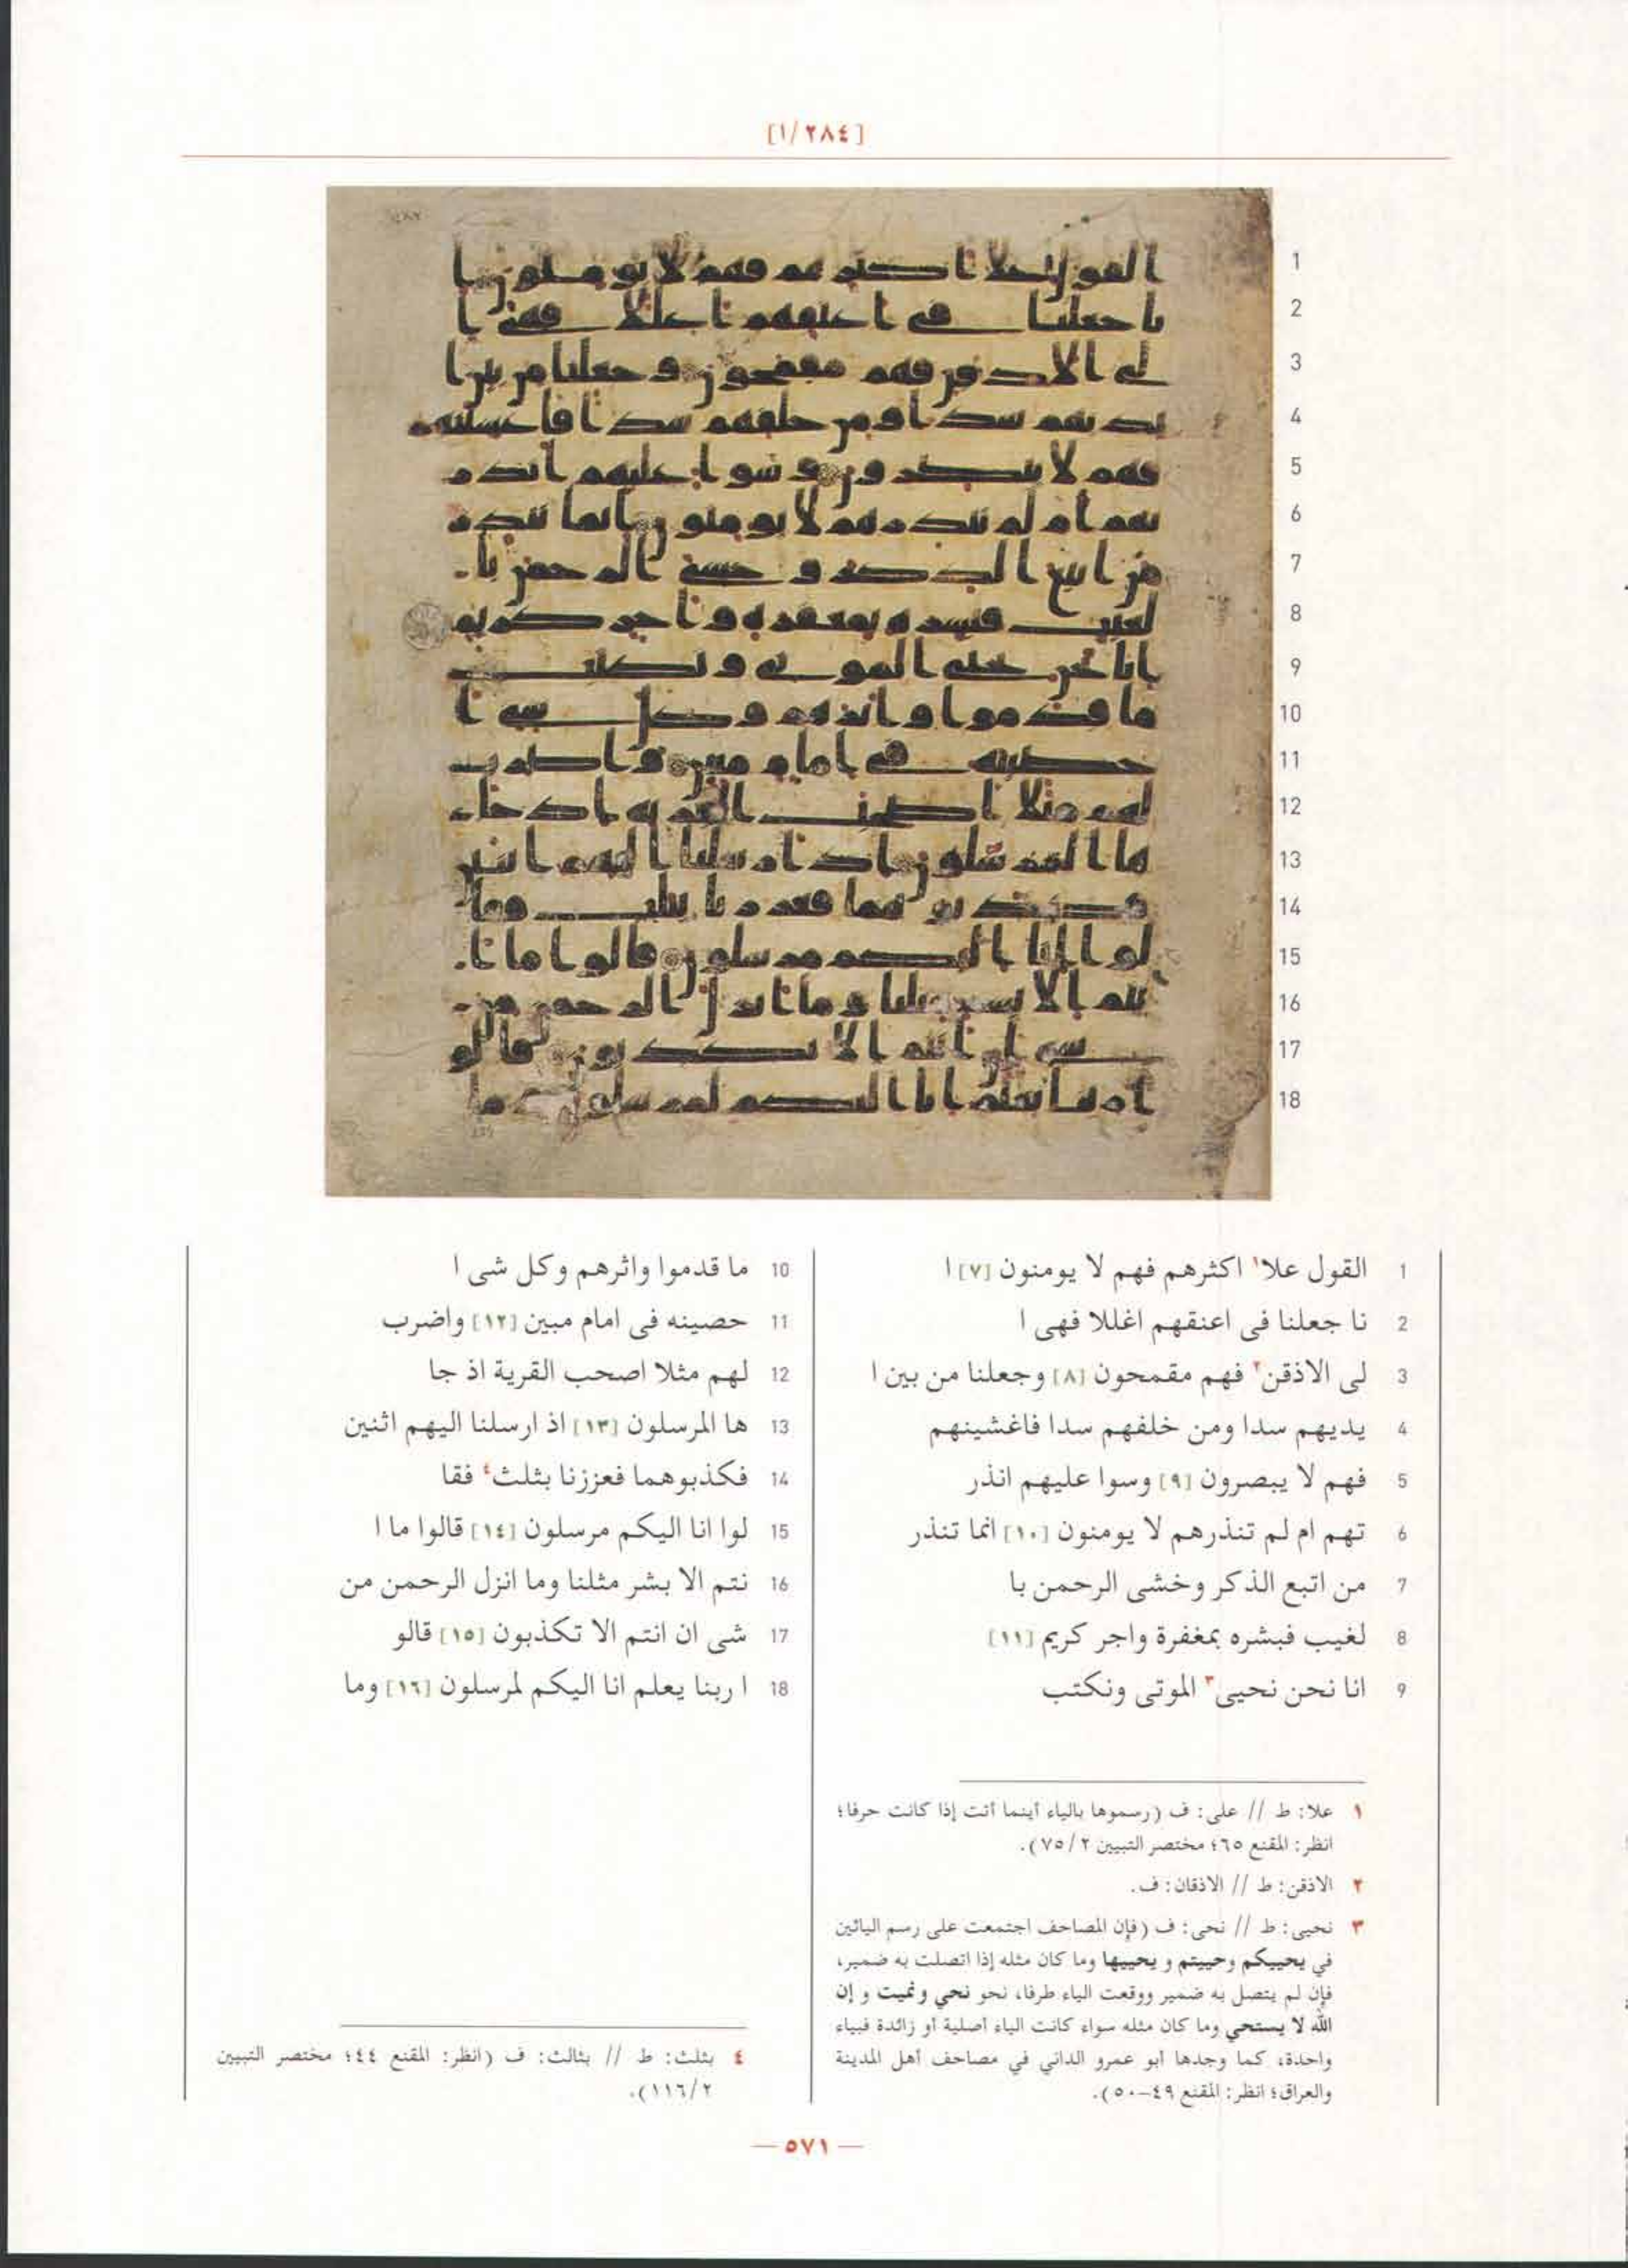 [٢٨٤/١]
1
2
3
4
5
6
7
8
9
10
11
12
13
14
15
16
17
18
1 القول علا١ اكثرهم فهم لا يومنون [٧] ا
2 نا جعلنا فى اعنقهم اغللا فهى ا
3 لى الاذقن٢ فهم مقمحون [٨] وجعلنا من بين ا
4 يديهم سدا ومن خلفهم سدا فاغشينهم
5 فهم لا يبصرون [٩] وسوا عليهم انذر
6 تهم ام لم تنذرهم لا يومنون [١٠] انما تنذر
7 من اتبع الذكر وخشى الرحمن با
8 لغيب فبشره بمغفرة واجر كريم [١١]
9 انا نحن نحيى٣ الموتى ونكتب
10 ما قدموا واثرهم وكل شى ا
11 حصينه فى امام مبين [١٢] واضرب
12 لهم مثلا اصحب القرية اذ جا
13 ها المرسلون [١٣] اذ ارسلنا اليهم اثنين
14 فكذبوهما فعززنا بثلث٤ فقا
15 لوا انا اليكم مرسلون [١٤] قالوا ما ا
16 نتم الا بشر مثلنا وما انزل الرحمن من
17 شى ان انتم الا تكذبون [١٥] قالو
18 ا ربنا يعلم انا اليكم لمرسلون [١٦] وما
١ علا: ط // على: ف (رسموها بالياء أينما أتت إذا كانت حرفا؛
انظر: المقنع ٦٥؛ مختصر التبيين ٧٥/٢).
٢ الاذقن: ط // الاذقان: ف.
٣ نحيى: ط // نحى: ف (فإن المصاحف اجتمعت على رسم اليائين
في يحييكم وحييتم و يحييها وما كان مثله إذا اتصلت به ضمير،
فإن لم يتصل به ضمير ووقعت الياء طرفا، نحو نحي ونميت و إن
الله لا يستحي وما كان مثله سواء كانت الياء أصلية أو زائدة فبياء
واحدة، كما وجدها أبو عمرو الداني في مصاحف أهل المدينة
والعراق؛ انظر: المقنع ٤٩-٥٠).
٤ بثلث: ط // بثالث: ف (انظر: المقنع ٤٤؛ مختصر التبيين
١١٦/٢).
— ٥٧١ —